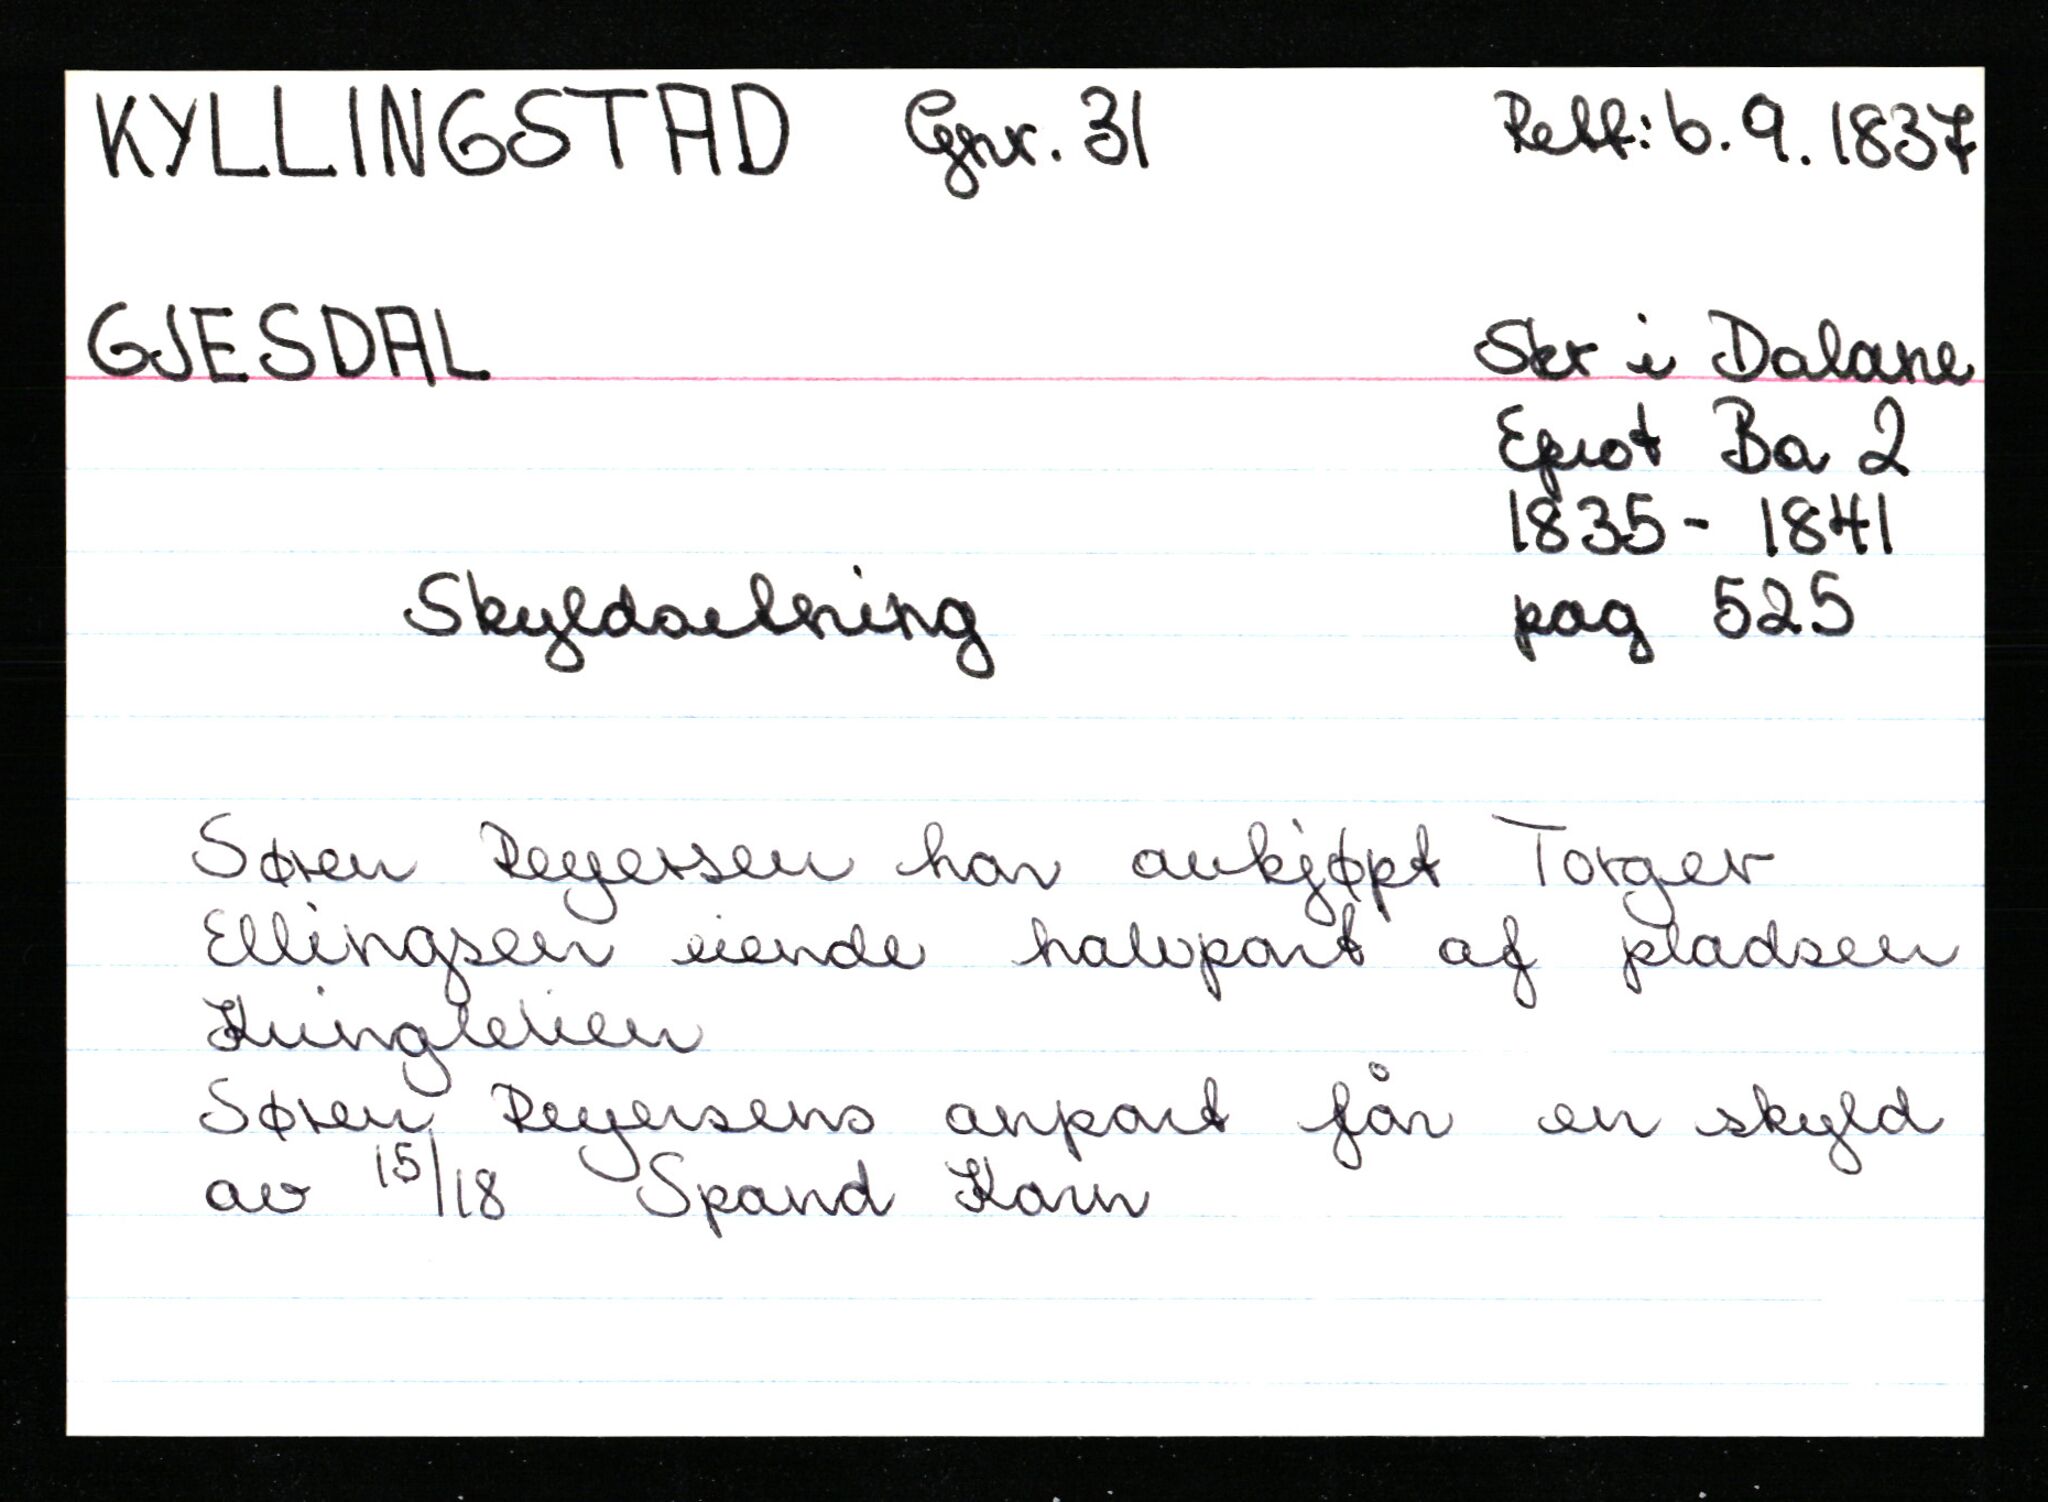 KYLLINGSTAD Gnr. 31 Reff: 6.9.1837
GJESDAL Skr i Dalane
Eprot Ba 2
1835 - 1841
pag 525
Skyldsetning
Søren Reyersen har ankjøpt Torger
Ellingsen eiende halvpart af pladsen
Søren Reyersens anpart får en skyld
av 15/18 Spand Korn